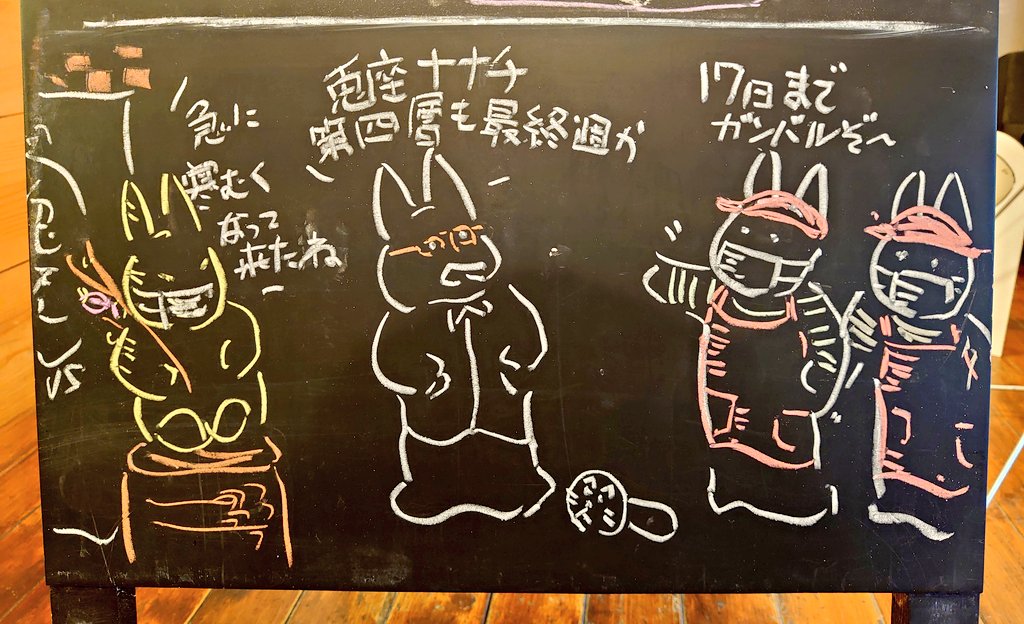 急に
寒むく
なって
来たね
兎座ナナチ
第四層も最終週か
17日まで
ガンバルぞ〜